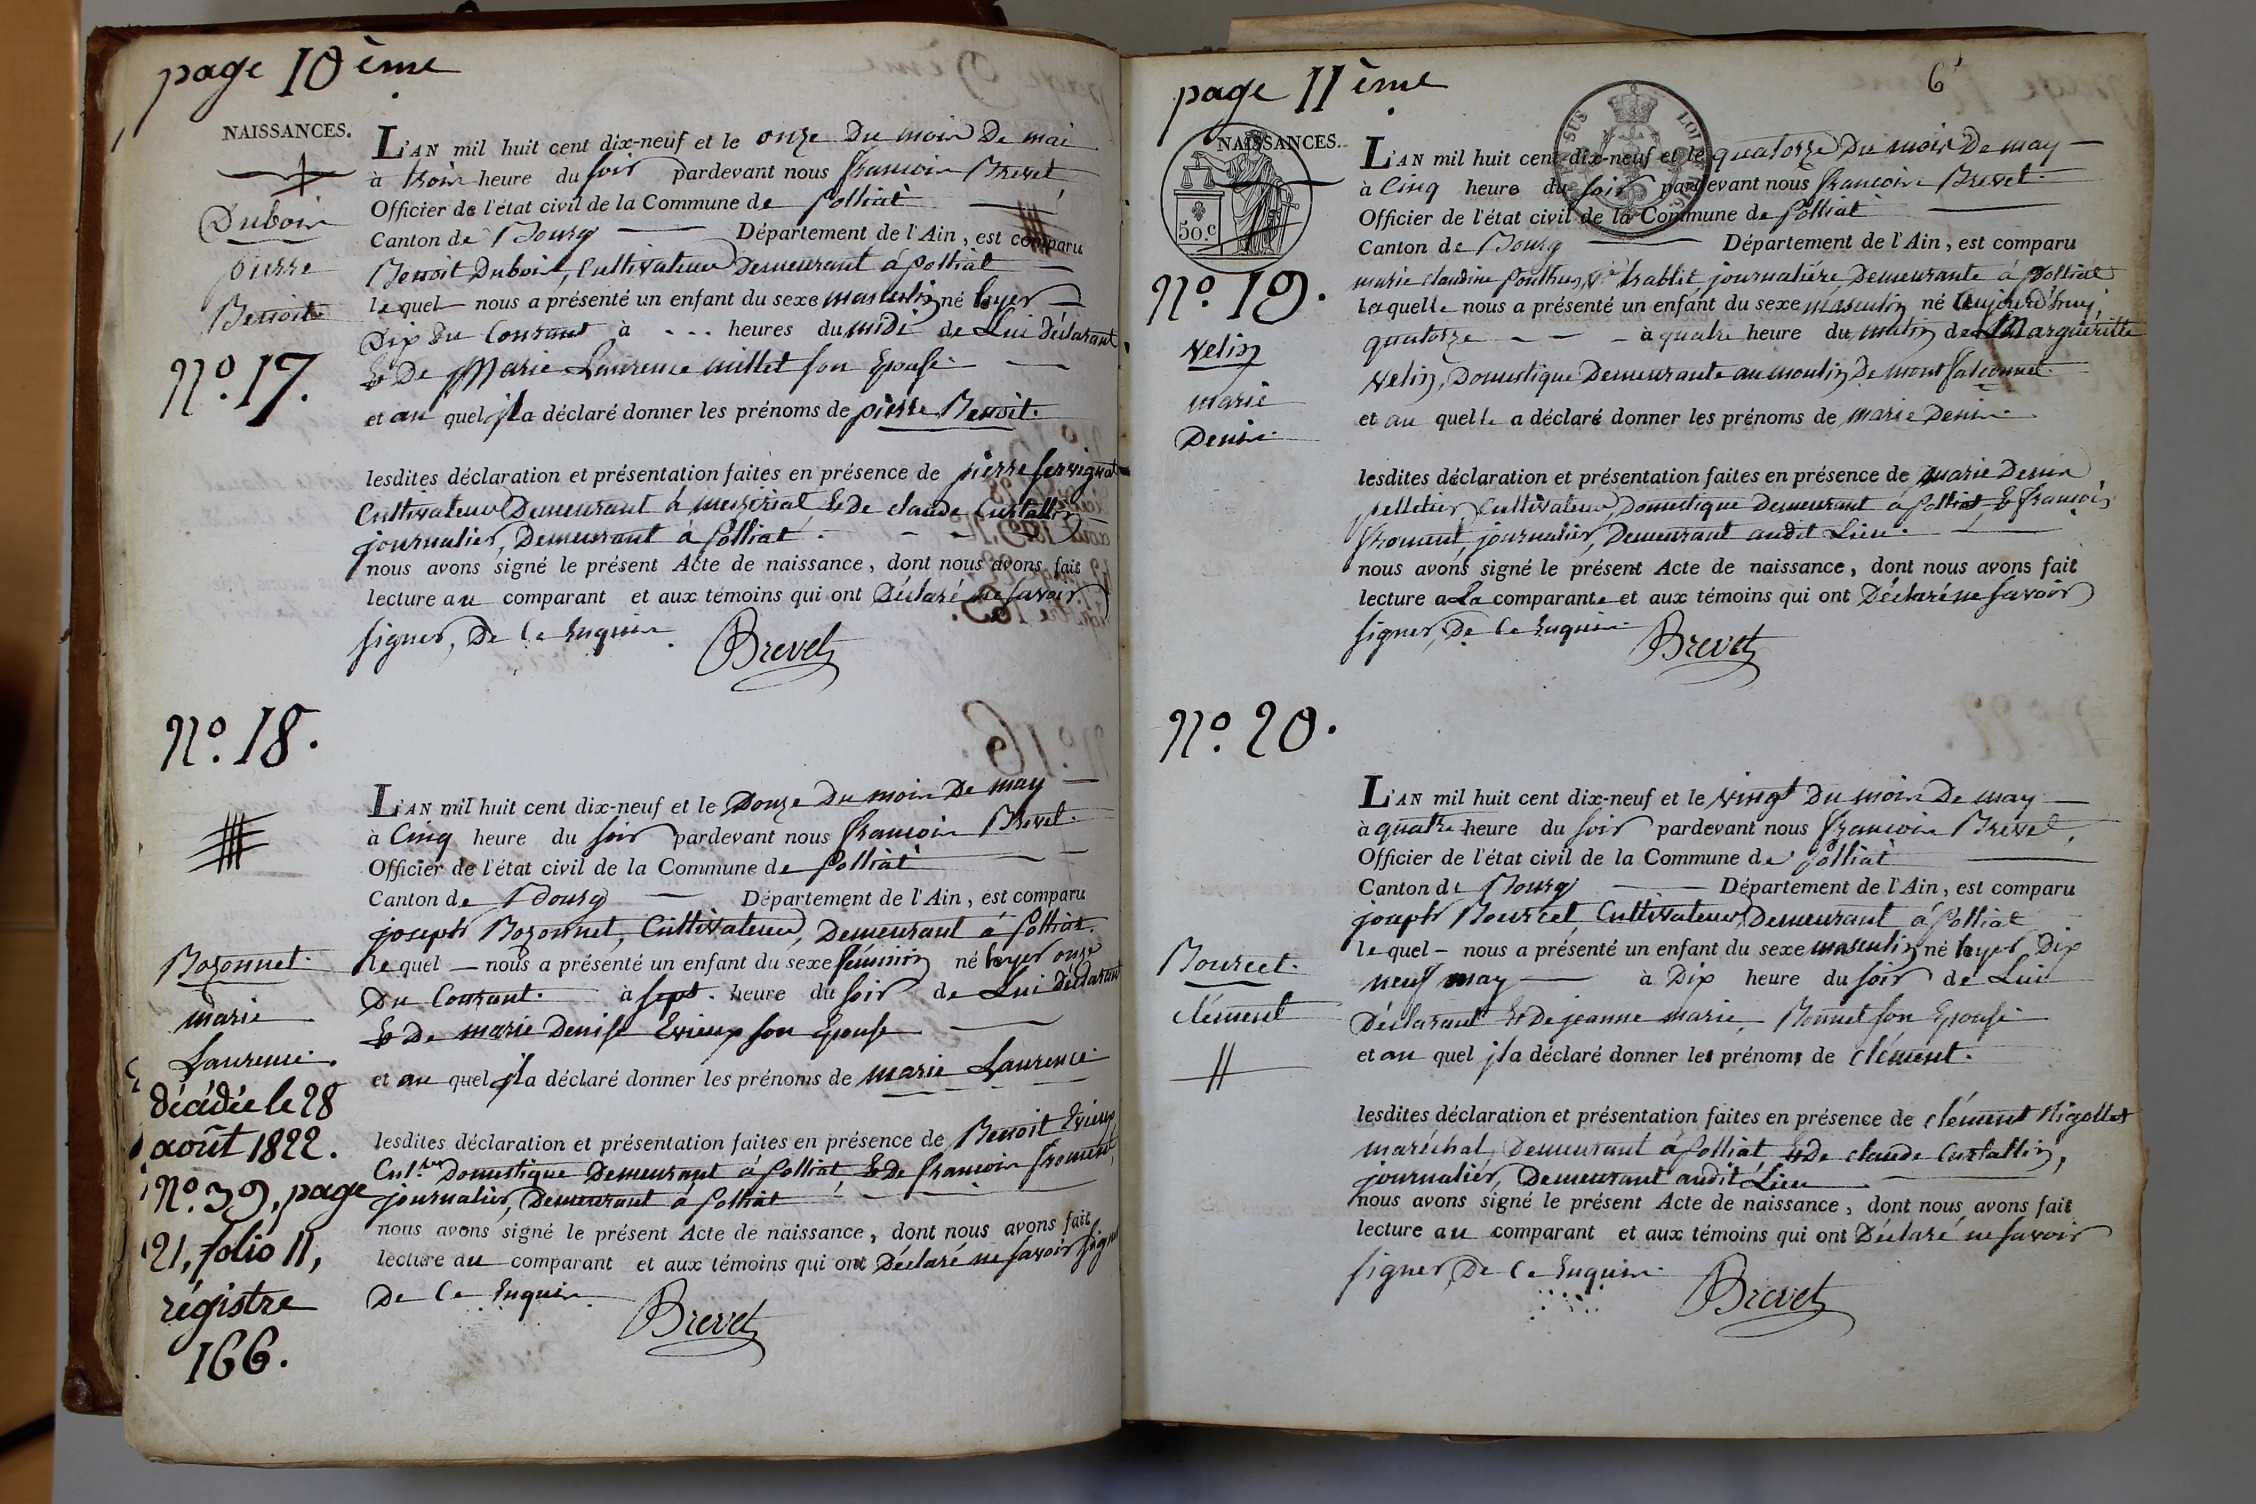 page 10ème
NAISSANCES.
Dubois
pierre
Benoit
N.o 17.
L'AN mil huit cent dix-neuf et le onze Du mois De mai
à trois heure du soir pardevant nous françois Brevet
Officier de l'état civil de la Commune de polliat
Canton de Bourg Département de l'Ain, est comparu
Benoit Dubois, Cultivateur Demeurant à polliat
le quel nous a présenté un enfant du sexe masculin né hyer
Dix Du Courant à ... heures du midi de Lui déclarant
& De Marie Laurence millet son Epouse
et au quel jl a déclaré donner les prénoms de pierre Benoit.
lesdites déclaration et présentation faites en présence de pierre
Cultivateur Demeurant à & De claude Curtallin
journalier, Demeurant à polliat.
nous avons signé le présent Acte de naissance, dont nous avons fait
lecture au comparant et aux témoins qui ont Déclaré ne savoir
signer, De Ce Enquis.
Brevet
N.o 18.
Bozonnet.
marie
Laurence.
décédée le 28
août 1822.
N.o 39, page
21, folio 11,
régistre
166.
L'AN mil huit cent dix-neuf et le Douze Du mois De may
à Cinq heure du soir pardevant nous françois Brevet.
Officier de l'état civil de la Commune de polliat
Canton de Bourg Département de l'Ain, est comparu
joseph Bozonnet, Cultivateur, Demeurant à polliat.
le quel nous a présenté un enfant du sexe féminin né hyer onze
Du Courant. à sept. heure du soir de Lui déclarant
& De marie Denise Evieux son Epouse
et au quel jl a déclaré donner les prénoms de marie Laurence
lesdites déclaration et présentation faites en présence de Benoit Evieux
Cult.eur Domestique Demeurant à polliat, & De françois froment,
journalier, Demeurant à polliat
nous avons signé le présent Acte de naissance, dont nous avons fait
lecture au comparant et aux témoins qui ont Déclaré ne savoir signer
De Ce Enquis
Brevet
page 11ème
6
NAISSANCES.
50.c
N.o 19.
Velin
marie
Denis.
L'AN mil huit cent dix-neuf et le quatorze Du mois De may
à Cinq heure du soir pardevant nous françois Brevet.
Officier de l'état civil de la Commune de polliat
Canton de Bourg Département de l'Ain, est comparu
marie claudine Ponthus, V.e trablit, journalière, Demeurante à polliat
laquelle nous a présenté un enfant du sexe masculin né Aujourd'huy
quatorze à quatre heure du matin de Margueritte
Velin, Domestique Demeurante au moulin De montfalconnet.
et au quel le a déclaré donner les prénoms de marie Denis.
lesdites déclaration et présentation faites en présence de marie Denis
pelletier, Cultivateur, Domestique Demeurant à polliat, & françois
froment, journalier, Demeurant audit Lieu.
nous avons signé le présent Acte de naissance, dont nous avons fait
lecture a La comparante et aux témoins qui ont Déclaré ne savoir
signer, De Ce Enquis.
Brevet
N.o 20.
Bourcet.
clément
L'AN mil huit cent dix-neuf et le vingt Du mois De may
à quatre heure du soir pardevant nous françois Brevet,
Officier de l'état civil de la Commune de polliat
Canton de Bourg Département de l'Ain, est comparu
joseph Bourcet, Cultivateur, Demeurant à polliat
le quel nous a présenté un enfant du sexe masculin né hyer Dix
neuf may à Dix heure du soir de Lui
Déclarant & De jeanne marie, Bonnet son Epouse.
et au quel jl a déclaré donner les prénoms de clément.
lesdites déclaration et présentation faites en présence de clément Rigollet
maréchal, Demeurant à polliat & De claude Curtallin,
journalier, Demeurant audit Lieu
nous avons signé le présent Acte de naissance, dont nous avons fait
lecture au comparant et aux témoins qui ont Déclaré ne savoir
signer, De Ce Enquis.
Brevet